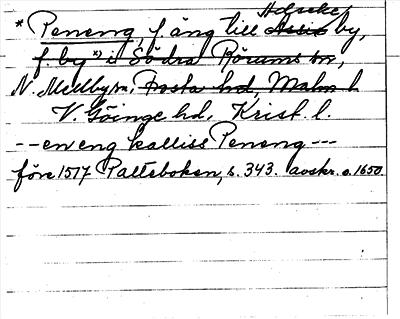 * Peneng f äng till
by,
f. by *) i Södra Rörums sn,
N. Mellby sn, Frosta hd, Malm. l.
V. Göinge hd, Krist. l.
-- en eng kalliss Peneng ---
före 1517 Palteboken, s. 343. avskr. o. 1650.